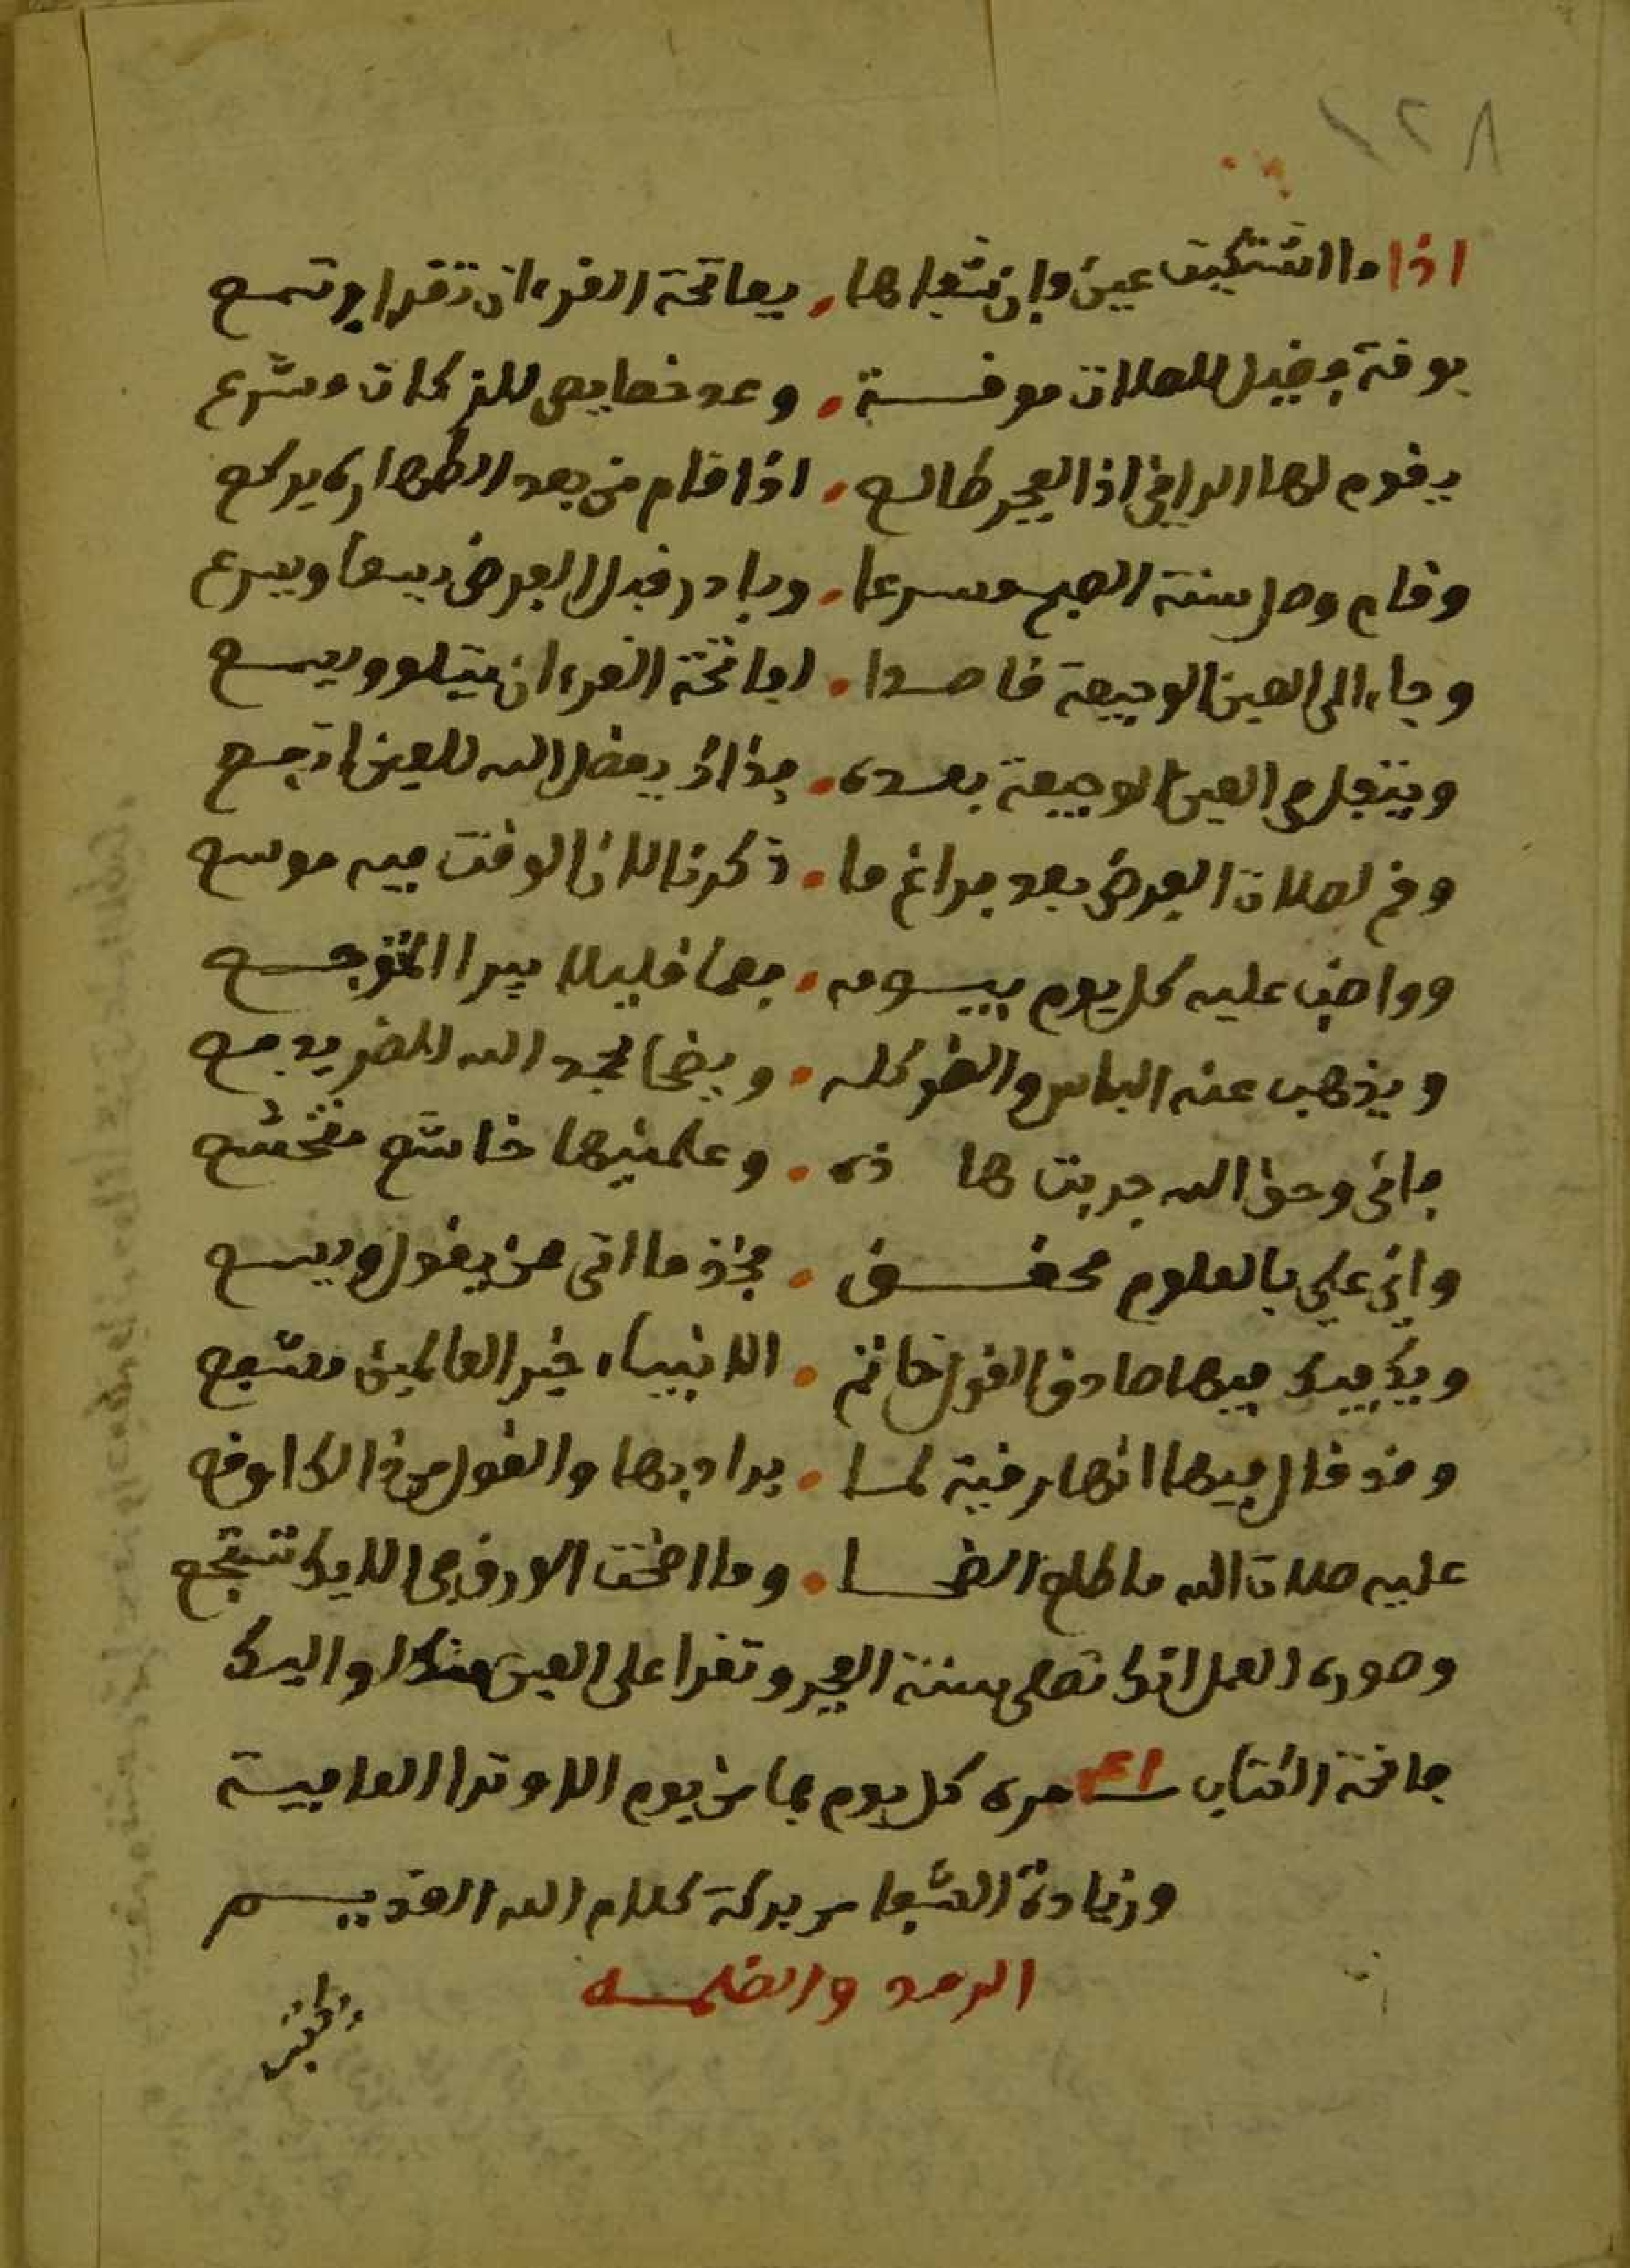 ١٢٨
اذا ما اشتكيت عين وان شفاها . بفاتحة القرءان تقرا وتسمع
بوقت قبيل الصلاة موقت . وعد خصايص للزكاة وشرع
يقوم لها الراقي اذا الفجر طالع . اذا قام من بعد الطهارة يركع
وقام وصل سنة الصبح مسرعا . وبادر قبل الفرض يسعا ويسرع
وجاء الى العين الوجيعة قاصدا . لفاتحة القرءان يتلوا ويسمع
ويتفل في العين الوجيعة بعده . فذاك بفضل الله للعين انجع
وقم لصلاة الفرض بعد فراغ ما . ذكرنا لان الوقت فيه موسع
وواضب عليه كل يوم بيومه . فعما قليل يبرا المتوجع
ويذهب عنه الباس والضر كله . ويضحا بحمد الله للضر يدفع
فاني وحق الله جربت هاذه . وعلمنيها خاشع متخشع
واني علي بالعلوم محقق . فخذ ما اتى ممن يقول ويسمع
ويكفيك فيها صادق القول خاتم . الانبياء خير العالمين مشفع
وقد قال فيها انها رقية لما . يراد بها والقول من ذالك اوقع
عليه صلاة الله ما طلع الضحا . وما اضحت الاورق في الايك تسجع
وصورة العمل انك تصلى سنة الفجر وتقرا على العين منك او اليك
فاتحة الكتاب ٤١ مرة كل يوم فما من يوم الا وترا العافية
وزيادة الشفا من بركة كلام الله القديم
الرمد والضلمه